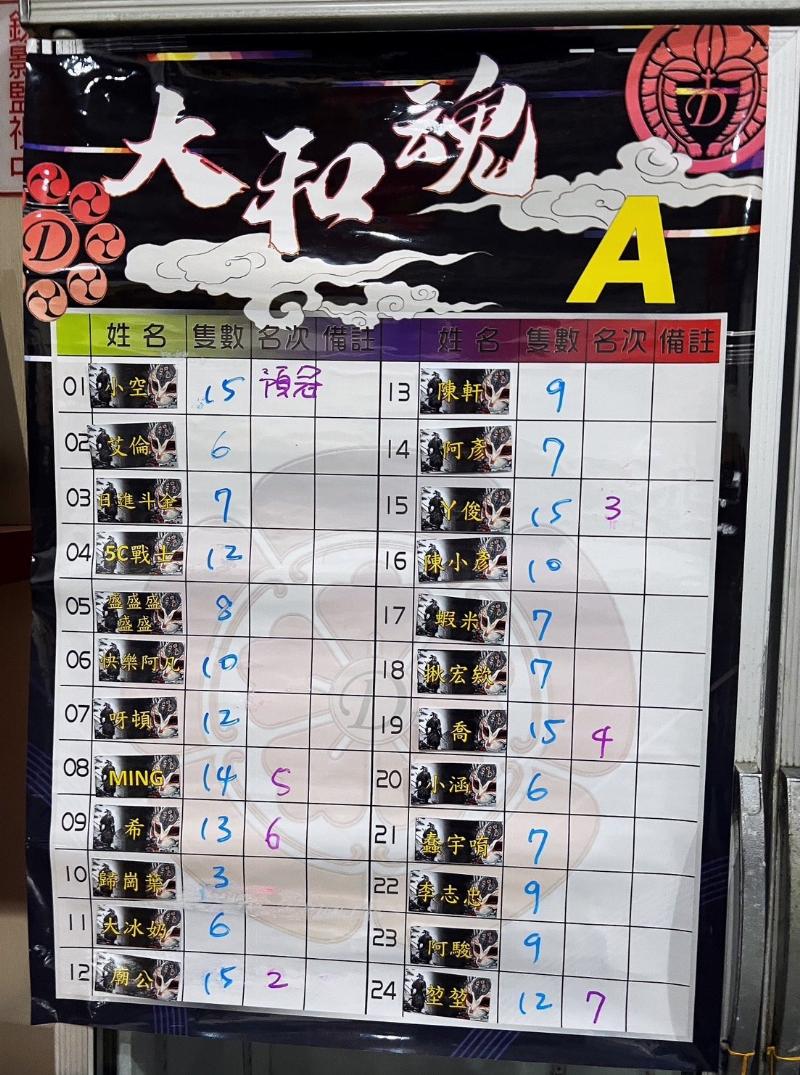 大和魂
D
D
A
姓名 隻數 名次 備註 姓名 隻數 名次 備註
01 小空 15 預冠
02 艾倫 6
03 日進斗金 7
04 5C戰士 12
05 盛盛盛盛盛 8
06 快樂阿凡 10
07 呀頓 12
08 MING 14 5
09 希 13 6
10 歸崗葉 3
11 大冰奶 6
12 廟公 15 2
13 陳軒 9
14 阿彥 7
15 丫俊 15 3
16 陳小彥 10
17 蝦米 7
18 揪宏欸 7
19 喬 15 4
20 小涵 6
21 蠢宇唷 7
22 李志忠 9
23 阿駿 9
24 堃堃 12 7